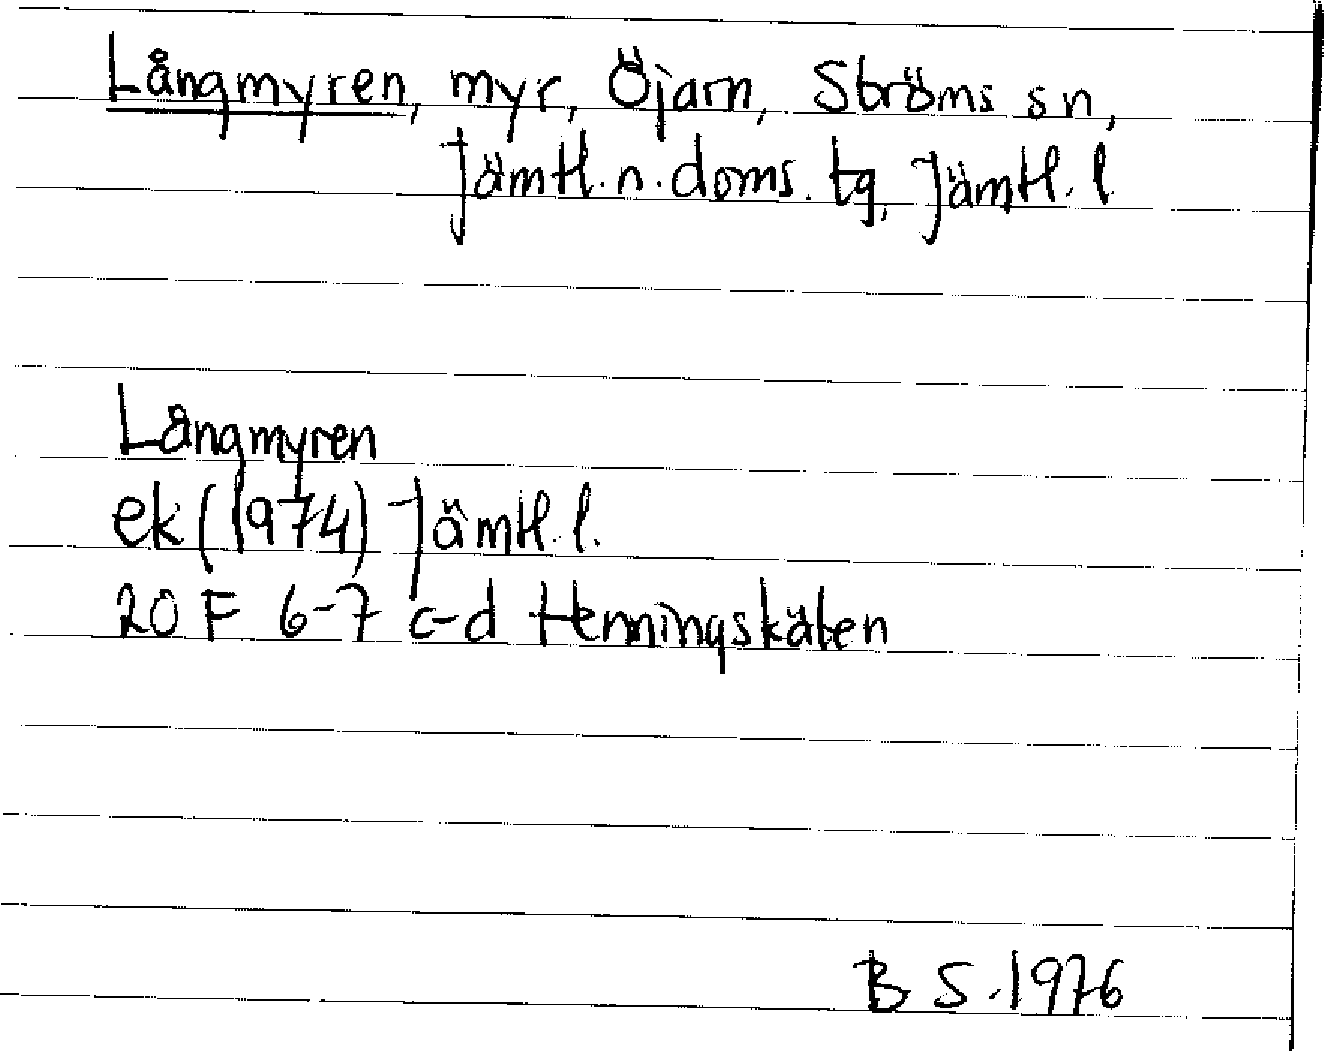 Långmyren, myr, Öjarn, Ströms sn,
Jämtl. n. doms. tg, Jämtl. l.
Långmyren
ek (1974) Jämtl. l.
20 F 6-7 c-d Henningskälen
B S. 1976